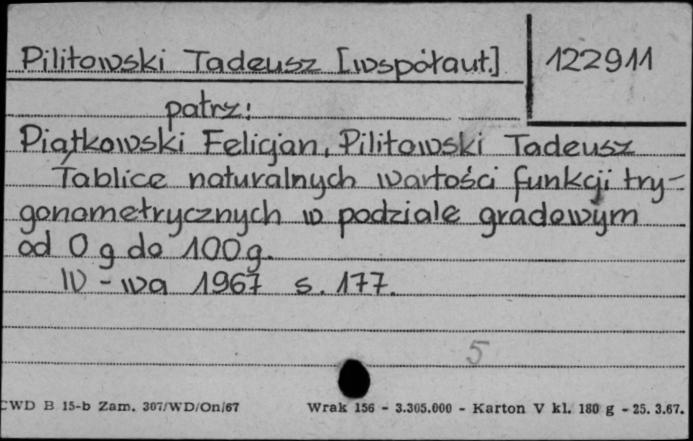 Pilitowski Tadeusz [współaut.]
122911
patrz:
Piątkowski Felicjan, Pilitowski Tadeusz
Tablice naturalnych wartości funkcji try-
gonometrycznych w podziale gradowym
od 0 g do 100 g.
W-wa 1967 s. 177.
5
CWD B 15-b Zam. 307/WD/On/67
Wrak 156 - 3.305.000 - Karton V kl. 180 g - 25. 3.67.